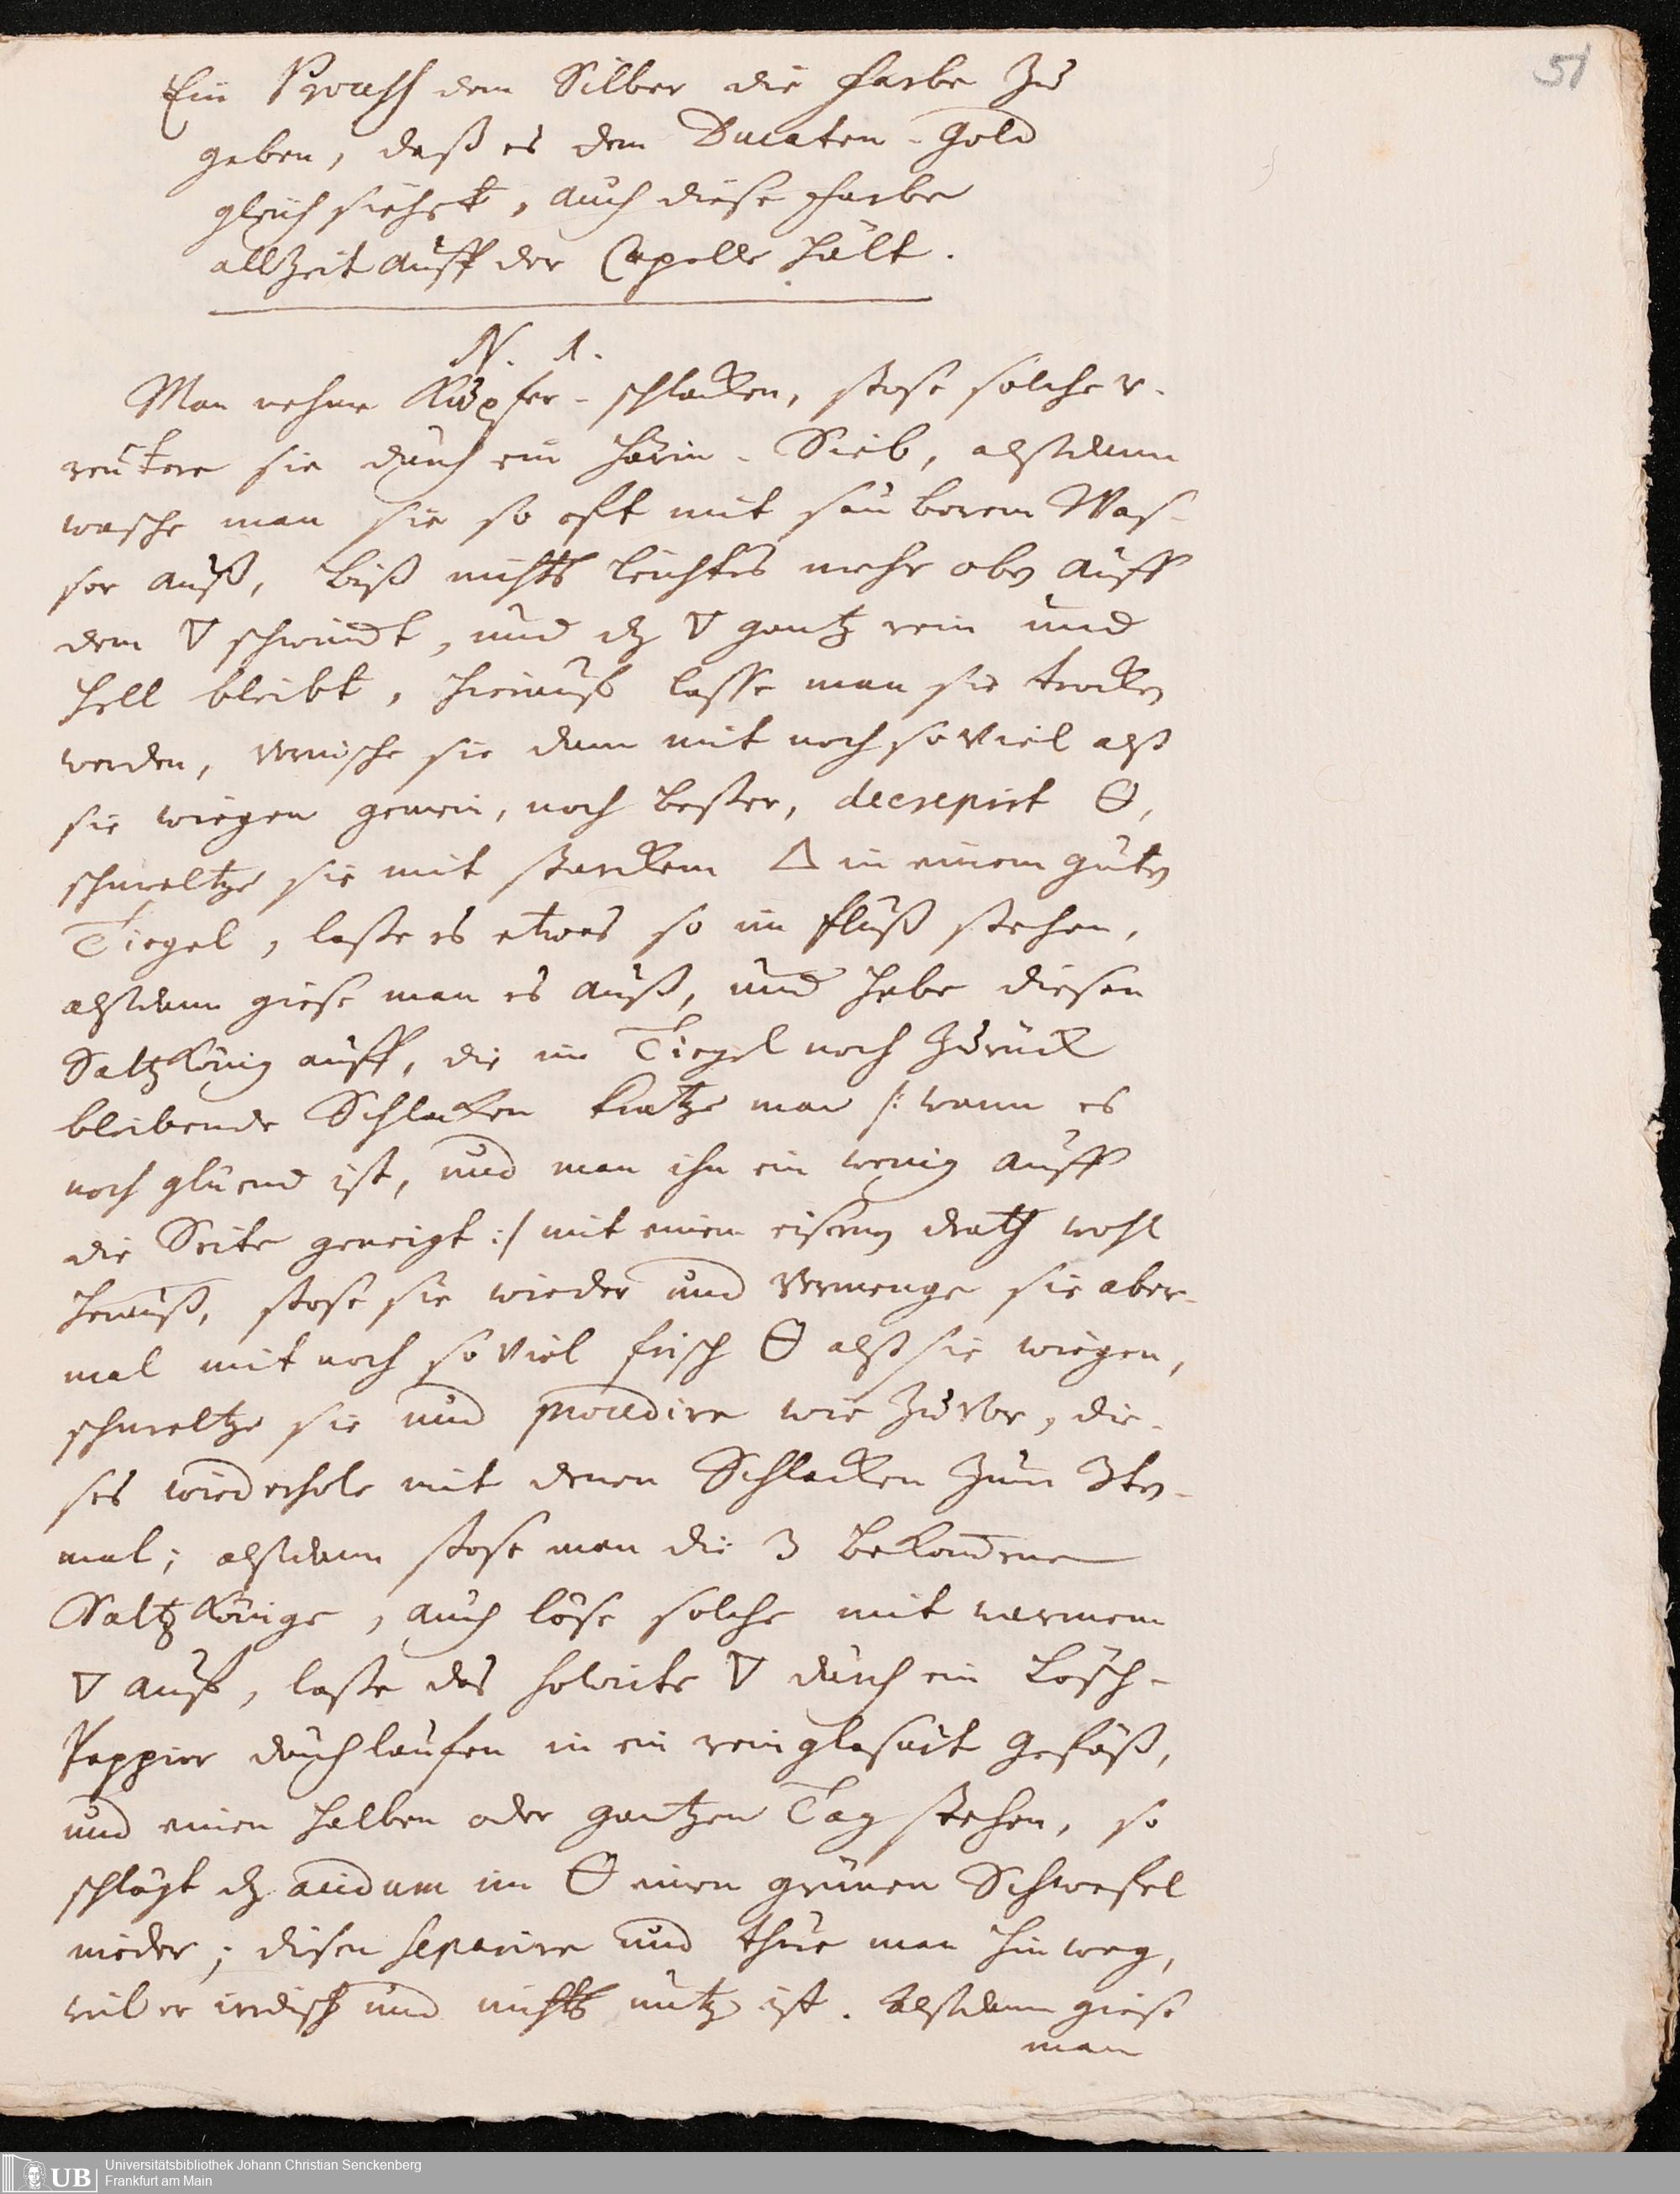 51
Ein Process dem Silber die Farbe zu
geben, daß es dem Ducaten-Gold
gleich siehet, auch diese Farbe
allzeit auff der Capelle hält.
N. 1.
Man nehme Kupfer-schlacken, stose solche v.
reutere sie durch ein härin-Sieb, alßdann
wasche man sie so oft mit sauberem Was-
ser auß, biß nichts leichtes mehr oben auff
dem 🜄 schwimbt, und dz 🜄 gantz rein und
hell bleibt, hierauß lasse man sie trocken
werden, vermische sie dann mit noch so viel alß
sie wiegen gemein, noch besser, decrepirt 🜔,
schmeltze sie mit starckem 🜂 in einem guten
Tiegel, lasse es etwas so im fluß stehen,
alßdann giese man es auß, und hebe diesen
Saltz König auff, die im Tiegel noch zurück
bleibende Schlacken kratze man /: wann es
noch glüend ist, und man ihn ein wenig auff
die Seite geneigt :/ mit einem eisernen drath wohl
herauß, stose sie wieder und vermenge sie aber-
mal mit noch so viel frisch 🜔 alß sie wiegen,
schmeltze sie und procedire wie zuvor, die-
ses wiederhole mit denen Schlacken zum 3ten-
mal; alßdann stose man die 3 bekommene
Saltz Könige, auch löse solche mit warmem
🜄 auf, lasse das solvirte 🜄 durch ein Lösch-
Pappier durchlaufen in ein rein glasurt Gefäß,
und einen halben oder gantzen Tag stehen, so
schlägt dz acidum im 🜔 einen grünen Schwefel
nieder; disen separire und thue man hinweg,
weil er irrdisch und nichts nutz ist. Alßdann giese
man
UB
Universitätsbibliothek Johann Christian Senckenberg
Frankfurt am Main